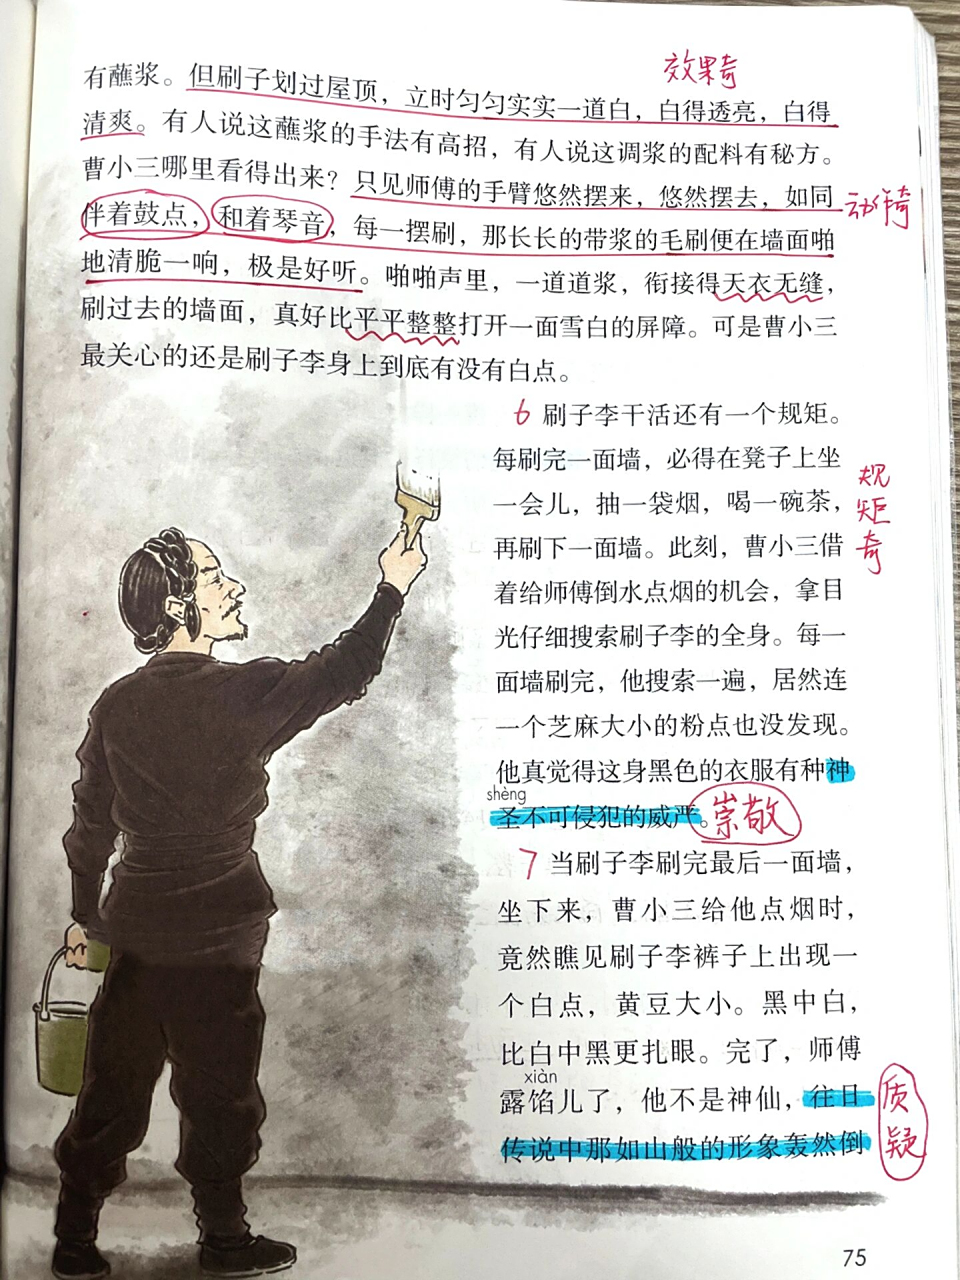 效果奇
有蘸浆。但刷子划过屋顶，立时匀匀实实一道白，白得透亮，白得
清爽。有人说这蘸浆的手法有高招，有人说这调浆的配料有秘方。
曹小三哪里看得出来？只见师傅的手臂悠然摆来，悠然摆去，如同
动作奇
伴着鼓点，和着琴音，每一摆刷，那长长的带浆的毛刷便在墙面啪
地清脆一响，极是好听。啪啪声里，一道道浆，衔接得天衣无缝，
刷过去的墙面，真好比平平整整打开一面雪白的屏障。可是曹小三
最关心的还是刷子李身上到底有没有白点。
6 刷子李干活还有一个规矩。
每刷完一面墙，必得在凳子上坐
一会儿，抽一袋烟，喝一碗茶，
规
矩
奇
再刷下一面墙。此刻，曹小三借
着给师傅倒水点烟的机会，拿目
光仔细搜索刷子李的全身。每一
面墙刷完，他搜索一遍，居然连
一个芝麻大小的粉点也没发现。
他真觉得这身黑色的衣服有种神
shèng
圣不可侵犯的威严。
崇敬
7 当刷子李刷完最后一面墙，
坐下来，曹小三给他点烟时，
竟然瞧见刷子李裤子上出现一
个白点，黄豆大小。黑中白，
比白中黑更扎眼。完了，师傅
xiàn
露馅儿了，他不是神仙，往日
传说中那如山般的形象轰然倒
质
疑
75